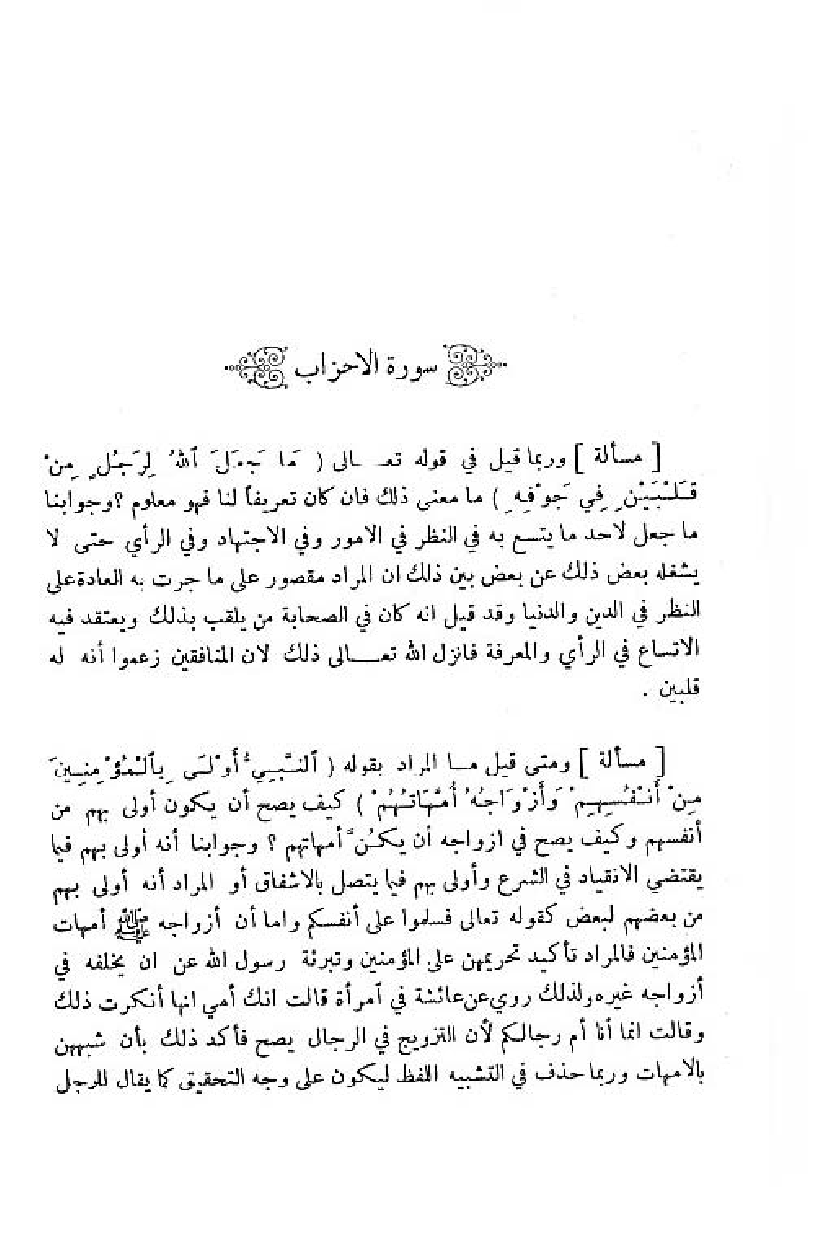 سورة الاحزاب
[ مسألة ] وربما قيل في قوله تعــالى ( مَا جَعَلَ ٱللهُ لِرَجُلٍ مِنْ
قَلْبَيْنِ فِي جَوْفِهِ ) ما معنى ذلك فان كان تعريفاً لنا فهو معلوم ؟ وجوابنا
ما جعل لاحد ما يتسع به في النظر في الامور وفي الاجتهاد وفي الرأي حتى لا
يشغله بعض ذلك عن بعض بين ذلك ان المراد مقصور على ما جرت به العادة على
النظر في الدين والدنيا وقد قيل انه كان في الصحابة من يلقب بذلك ويعتقد فيه
الاتساع في الرأي والمعرفة فانزل الله تعــالى ذلك لان المنافقين زعموا أنه له
قلبين .
[ مسألة ] ومتى قيل مـا المراد بقوله ( ٱلنَّبِيُّ أَوْلَى بِٱلْمُؤْمِنِينَ
مِنْ أَنْفُسِهِمْ وَأَزْوَاجُهُ أُمَّهَاتُهُمْ ) كيف يصح أن يكون أولى بهم من
أنفسهم وكيف يصح في ازواجه أن يكُنَّ أمهاتهم ؟ وجوابنا أنه أولى بهم فيما
يقتضي الانقياد في الشرع وأولى بهم فيما يتصل بالاشفاق أو المراد أنه أولى بهم
من بعضهم لبعض كقوله تعالى فسلموا على أنفسكم واما أن أزواجه ﷺ أمهات
المؤمنين فالمراد تأكيد تحريمهن على المؤمنين وتبرئة رسول الله عن ان يخلفه في
أزواجه غيره ولذلك روي عن عائشة في أمرأة قالت انك أمي انها أنكرت ذلك
وقالت انما أنا أم رجالكم لأن التزويج في الرجال يصح فأكد ذلك بأن شبههن
بالامهات وربما حذف في التشبيه اللفظ ليكون على وجه التحقيق كما يقال للرجل